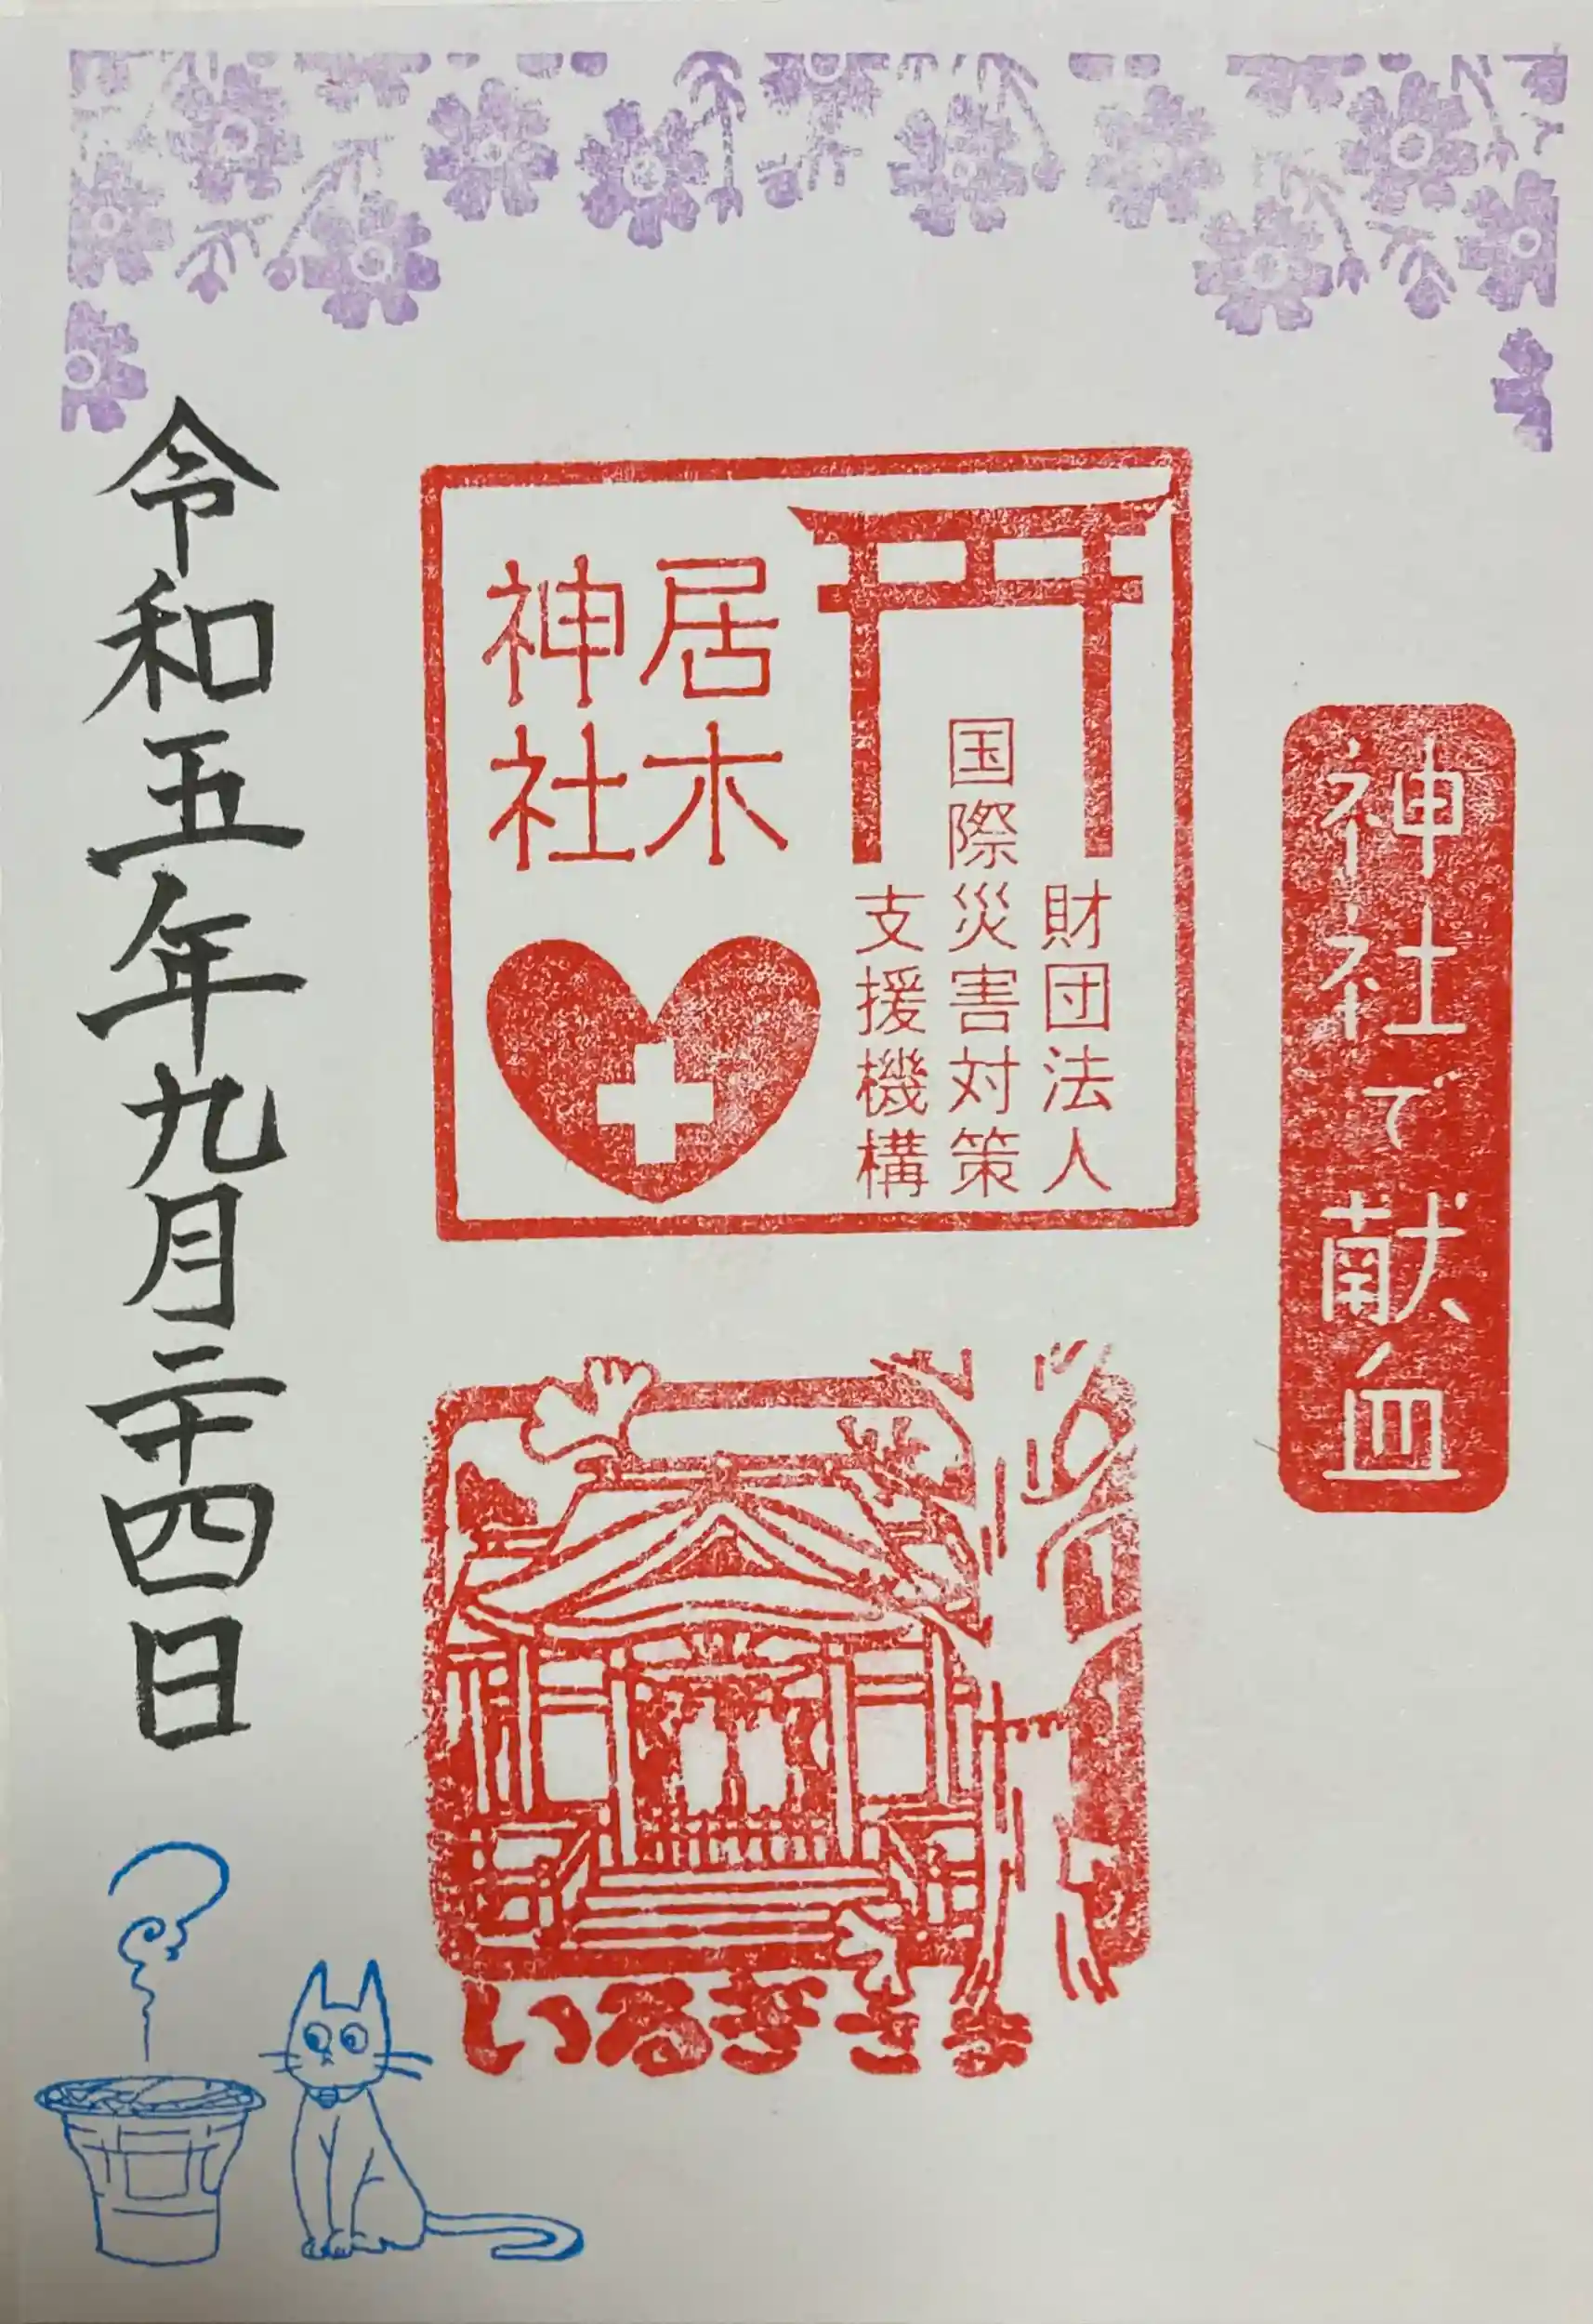 神社で献血
財団法人
国際災害対策
支援機構
居木
神社
いるぎさま
令和五年九月二十四日